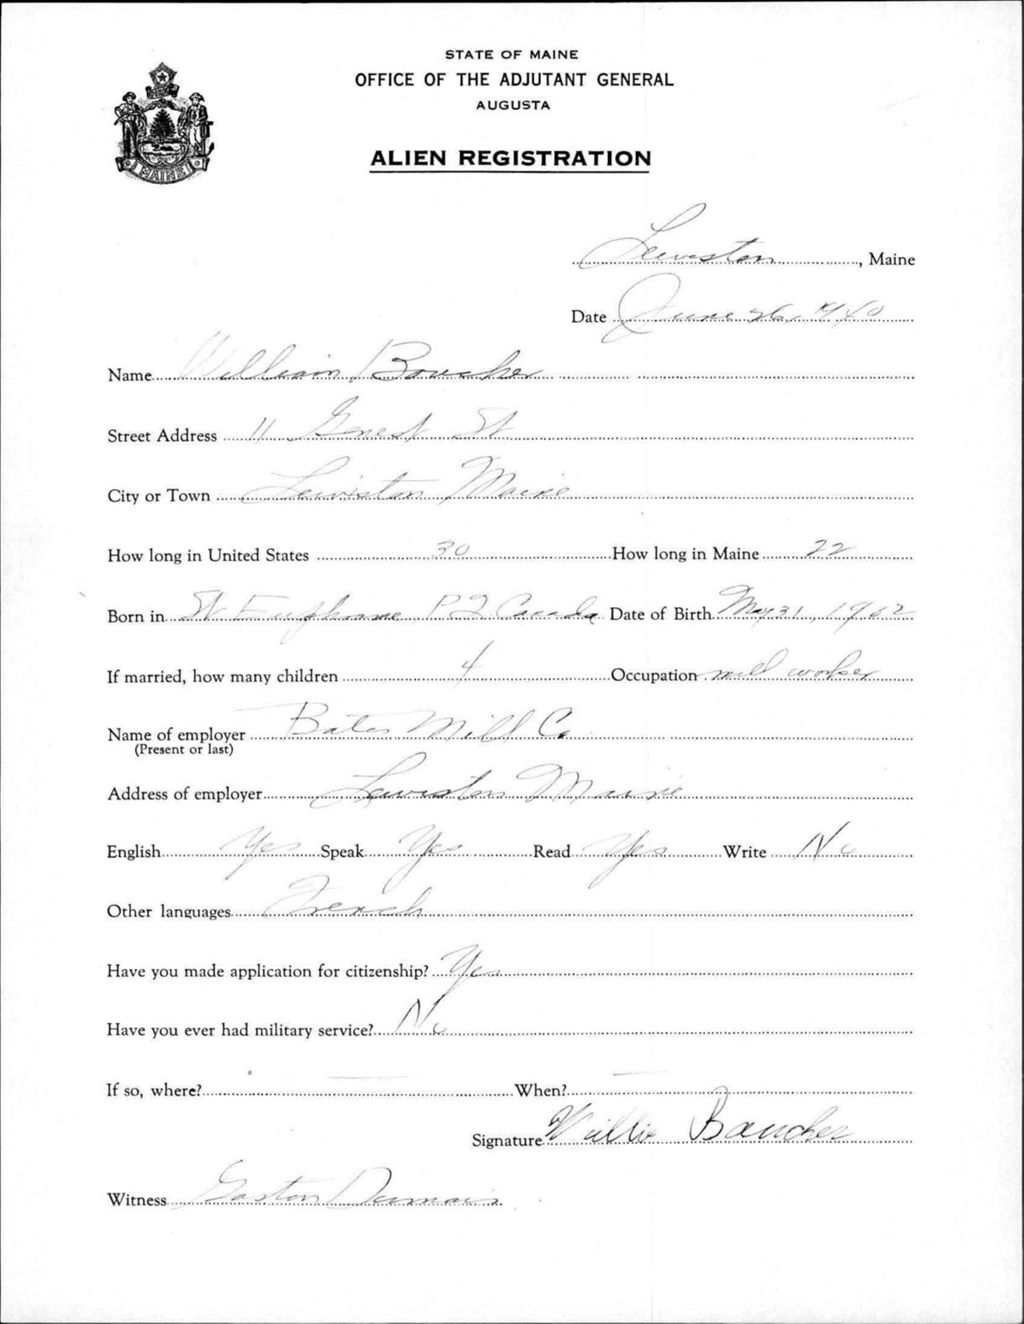 STATE OF MAINE
OFFICE OF THE ADJUTANT GENERAL
AUGUSTA
MAINE
ALIEN REGISTRATION
Lewiston, Maine
Date June 26, 1940
Name William Boucher
Street Address 11 Genest St
City or Town Lewiston Maine
How long in United States 30 How long in Maine 22
Born in St Euphrane P2 Canada Date of Birth May 31, 1902
If married, how many children 4 Occupation mill worker
Name of employer Bates Mill Co
(Present or last)
Address of employer Lewiston Maine
English Yes Speak Yes Read Yes Write No
Other languages French
Have you made application for citizenship? Yes
Have you ever had military service? No
If so, where? — When? —
Signature Willie Boucher
Witness Gaston Dumais